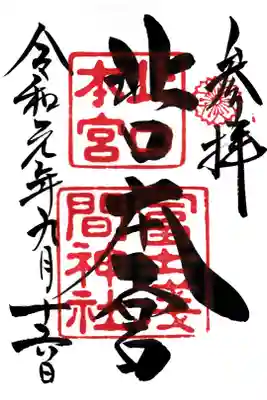 参拝
北口本宮
北口
本宮
冨士浅
間神社
令和元年九月十六日